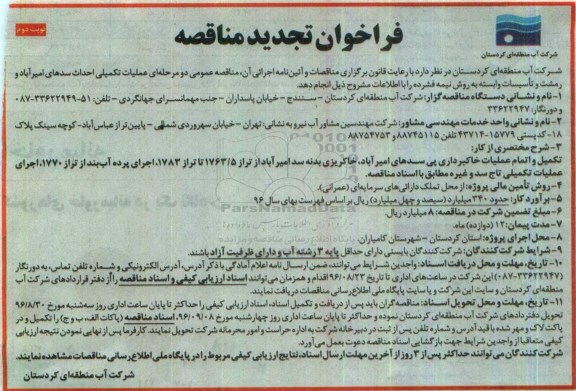 نوبت دوم
فراخوان تجدید مناقصه
شرکت آب منطقه‌ای کردستان
شرکت آب منطقه‌ای کردستان در نظر دارد با رعایت قانون برگزاری مناقصات و آئین‌نامه اجرائی آن، مناقصه عمومی دو مرحله‌ای عملیات تکمیلی احداث سدهای امیرآباد و
رمشت و تأسیسات وابسته به روش نیمه فشرده را با اطلاعات مشروح ذیل انجام دهد.
۱- نام و نشانی دستگاه مناقصه گزار: شرکت آب منطقه‌ای کردستان - سنندج - خیابان پاسداران - جنب مهمانسرای جهانگردی - تلفن: ۵۱-۳۳۶۲۲۹۴۹-۰۸۷
و دورنگار: ۳۳۶۲۲۹۴۷
۲- نام و نشانی واحد خدمات مهندسی مشاور: شرکت مهندسین مشاور آب نیرو به نشانی: تهران - خیابان سهروردی شمالی - پایین‌تر از عباس‌آباد- کوچه سینک پلاک
۱۸- کدپستی ۱۵۷۷۹-۴۳۷۱۴ تلفن ۸۸۷۴۵۱۱۵ نمابر ۸۸۷۵۴۷۵۳
۳- شرح مختصری از کار:
تکمیل و اتمام عملیات خاکبرداری پی سدهای امیرآباد، خاکریزی بدنه سد امیرآباد از تراز ۱۷۶۳/۵ تا تراز ۱۷۸۳، اجرای پرده آب‌بند از تراز ۱۷۷۰، اجرای
عملیات تکمیلی تاج سد و غیره مطابق با اسناد مناقصه.
۴- روش تأمین مالی پروژه: از محل تملک دارائی‌های سرمایه‌ای (عمرانی).
۵- برآورد کار: حدود ۳۴۰ میلیارد (سیصد و چهل میلیارد) ریال بر اساس فهرست بهای سال ۹۶
۶- مبلغ تضمین شرکت در مناقصه: ۸ میلیارد ریال.
۷- مدت پیمان: ۱۲ (دوازده) ماه.
۸- محل اجرای پروژه: استان کردستان - شهرستان کامیاران.
۹- شرایط شرکت کنندگان: شرکت کنندگان بایستی دارای حداقل پایه ۳ رشته آب و دارای ظرفیت آزاد باشند.
۱۰- تاریخ، مهلت و محل دریافت اسناد: واجدین شرایط می‌توانند، ضمن ارسال نامه اعلام آمادگی با ذکر آدرس، آدرس الکترونیکی و شماره تلفن تماس، به دورنگار
(۳۳۶۲۲۹۴۷-۰۸۷) این شرکت در ساعت‌های اداری تا تاریخ ۹۶/۰۸/۲۳ اقدام و همزمان می‌توانند اسناد ارزیابی کیفی و اسناد مناقصه را از دفتر قراردادهای شرکت آب
منطقه‌ای کردستان و سایت این شرکت و یا سایت پایگاه ملی اطلاع رسانی مناقصات دریافت نمایند.
۱۱- تاریخ، مهلت و محل تحویل اسناد: مناقصه گران باید پس از دریافت و تکمیل اسناد، اسناد ارزیابی کیفی را حداکثر تا پایان ساعت اداری روز سه‌شنبه مورخ ۹۶/۸/۳۰
تحویل دفتر قراردادهای شرکت آب منطقه‌ای کردستان نموده و حداکثر تا پایان ساعت اداری روز چهارشنبه مورخ ۹۶/۰۹/۰۸، اسناد مناقصه (پاکات الف، ب و ج) را تکمیل و در
پاکت لاک و مهر شده با قید آدرس و شماره تلفن پس از ثبت در دبیرخانه شرکت به اداره حراست و امور محرمانه شرکت تحویل نمایند. کارفرما پس از نهایی نمودن نتیجه ارزیابی
کیفی متعاقباً از واجدین شرایط جهت بازگشایی اسناد مناقصه دعوت بعمل می‌آورد.
شرکت کنندگان می‌توانند حداکثر پس از ۳ روز از آخرین مهلت ارسال اسناد، نتایج ارزیابی کیفی مربوط را در پایگاه ملی اطلاع رسانی مناقصات مشاهده نمایند.
شرکت آب منطقه‌ای کردستان